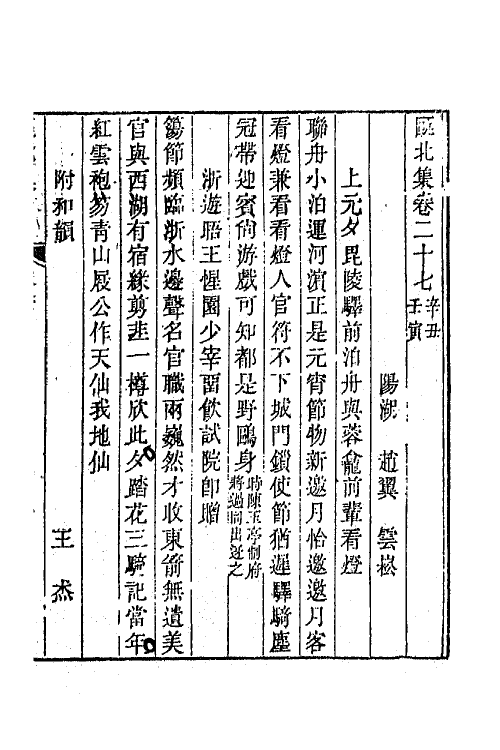 甌北集卷二十七辛丑壬寅
陽湖　趙翼　雲崧
上元夕毘陵驛前泊舟與蓉龕前輩看燈
聯舟小泊運河濱正是元宵節物新邀月恰邀邀月客
看燈兼看看燈人官符不下城門鎖使節猶遲驛騎塵
冠帶迎賓尙游戲可知都是野鷗身時陳玉亭制府將過同出迓之
浙遊晤王惺園少宰畱飮試院卽贈
鷊節頻臨浙水邊聲名官職兩巍然才收東箭無遺美
官與西湖有宿緣剪韭一樽欣此夕踏花三騎記當年
紅雲袍笏靑山屐公作天仙我地仙
附和韻　王杰